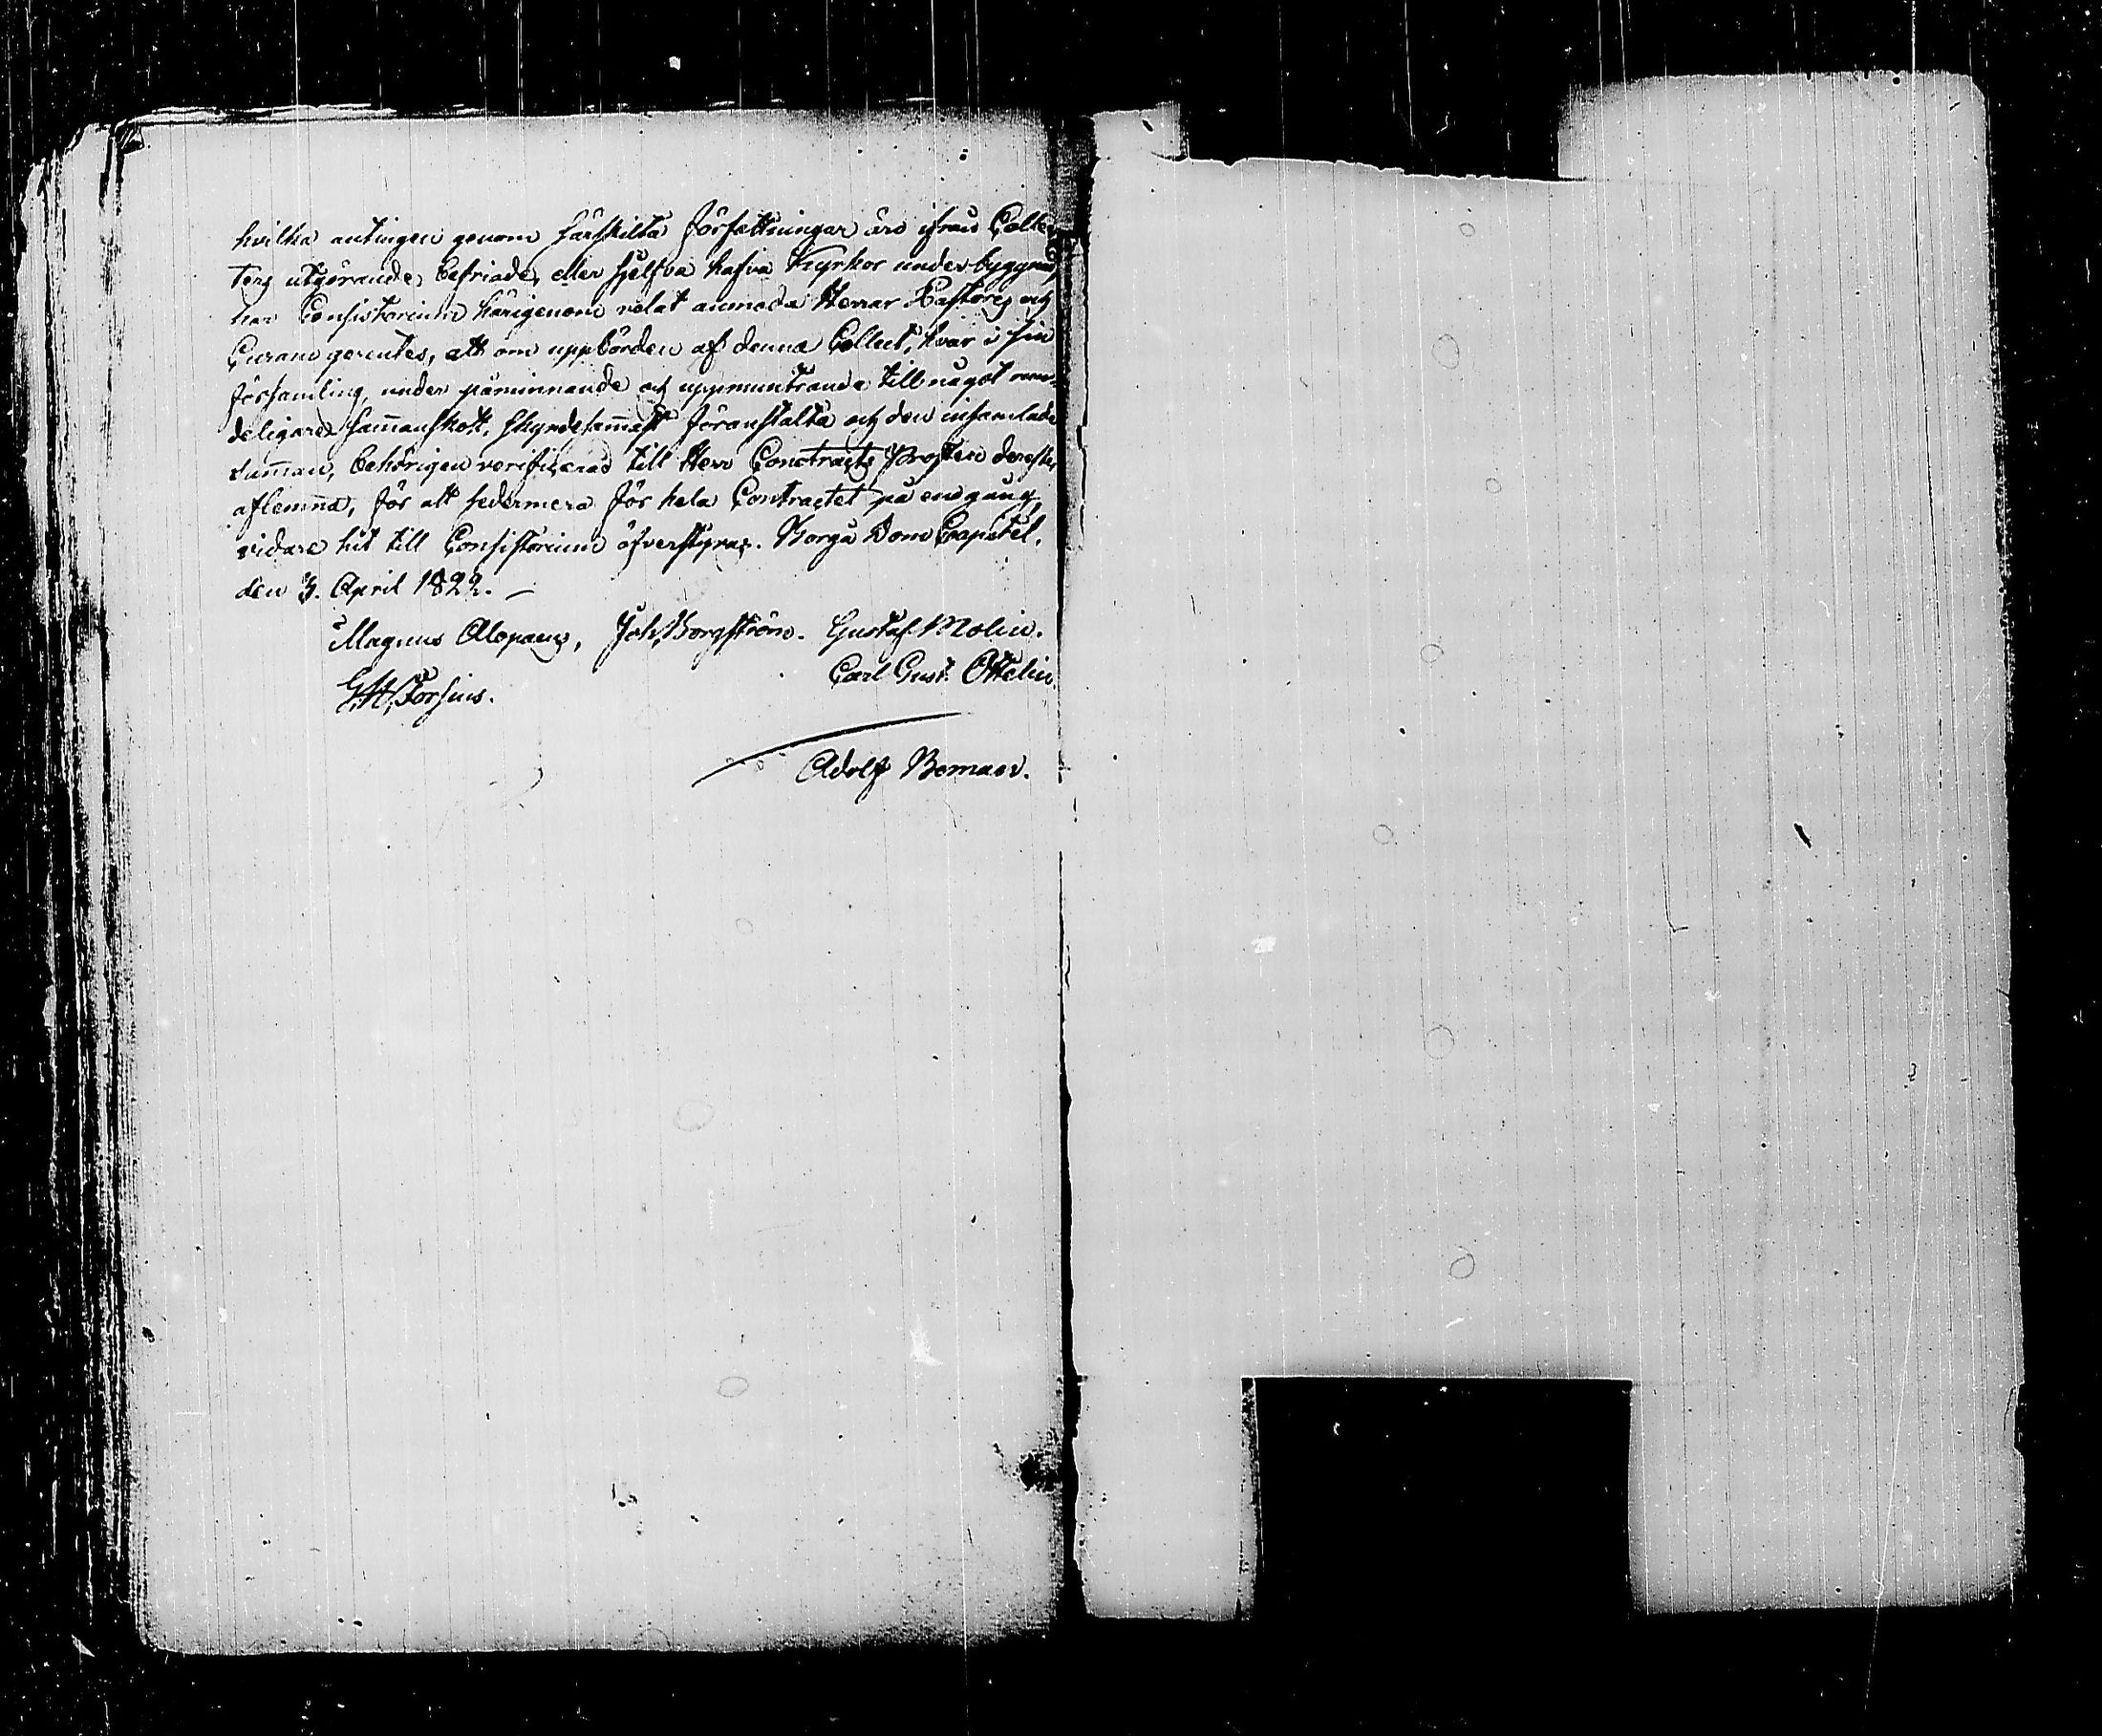 hvilka antingen genom särskilta författningar äro ifrån Collec
ters utgörande, befriade, eller sjelfva hafva Kyrkor under byggnad,
har Consistorium härigenom velat anmoda Herrar Pastores och
Curam gerentes, att om uppbörden af denna Collect, hvar i sin
församling, under påminnande och uppmuntrande till något
deligare sam̄anskott, skyndsam̄ast föranstalta och den insamlade
sum̄an, behörigen verificerad till Herr Contracts Prosten derefter
aflem̄na, för att sedermera för hela Contractet på en gång,
vidare hit till Consistorium öfverstyras. Borgå Dom Capitel,
den 3. April 1822. —
Magnus Alopaeus, Joh. Borgström. Gustaf Molin.
Carl Gust. Ottelin.
G. H. Forsius.
Adolf Boman.